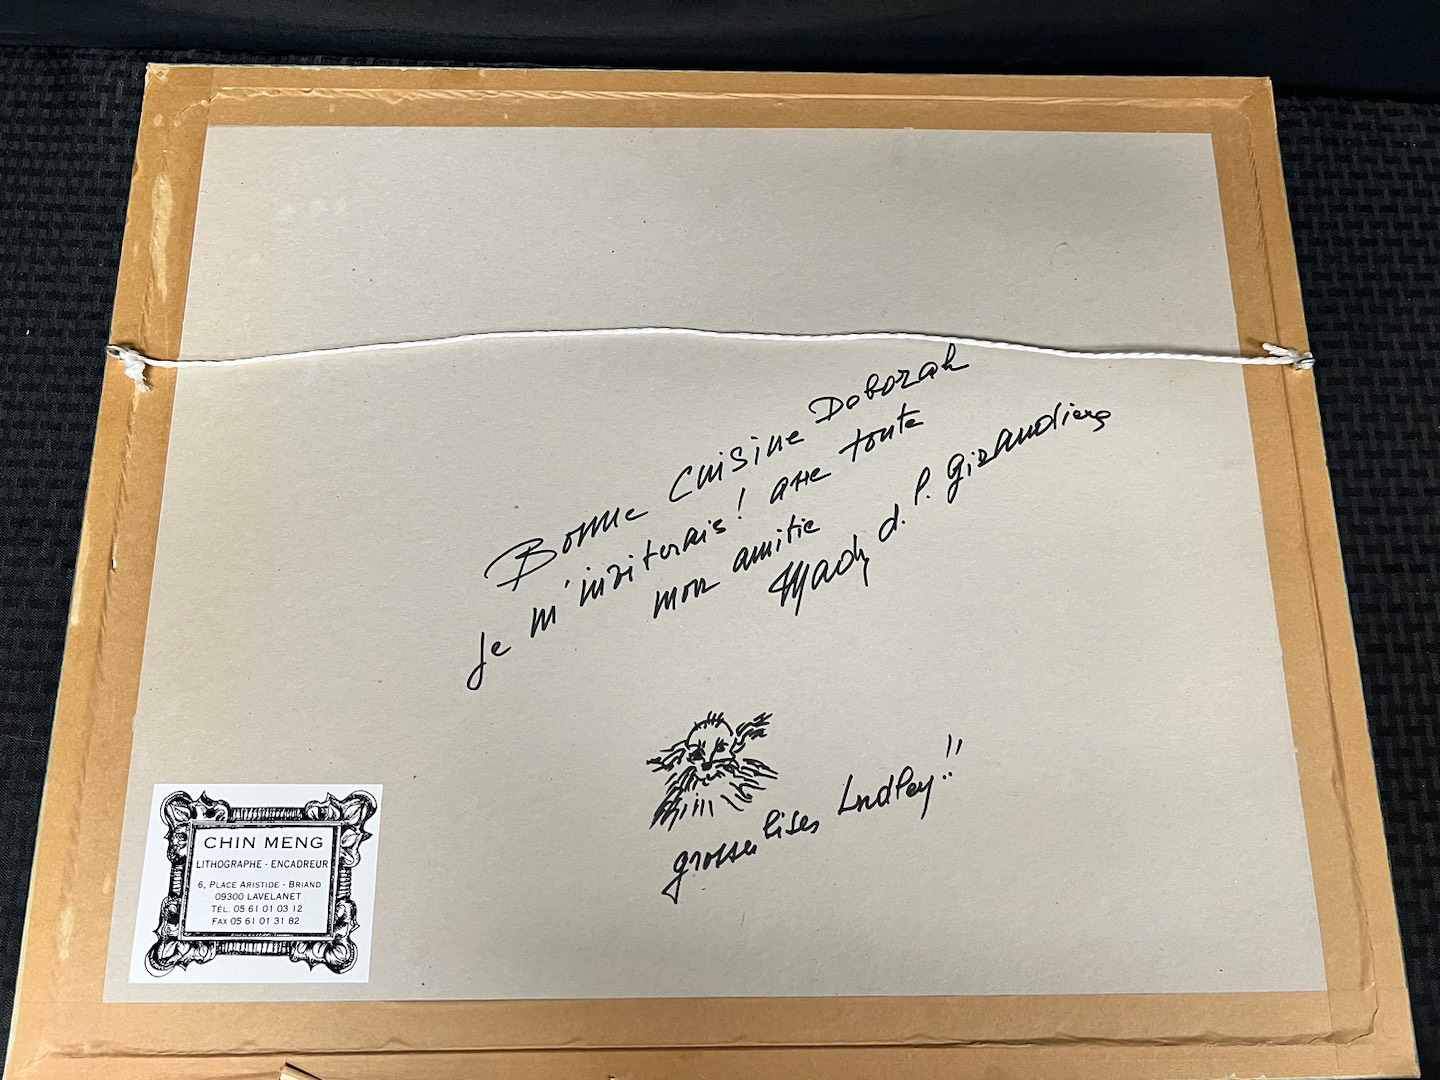 Bonne Cuisine Deborah
Je m'inviterais! avec toute
mon amitie
Mady d. l. Girandiere
grosses lises Lndley!!
CHIN MENG
LITHOGRAPHE - ENCADREUR
6, PLACE ARISTIDE - BRIAND
09300 LAVELANET
TÉL. 05 61 01 03 12
FAX 05 61 01 31 82